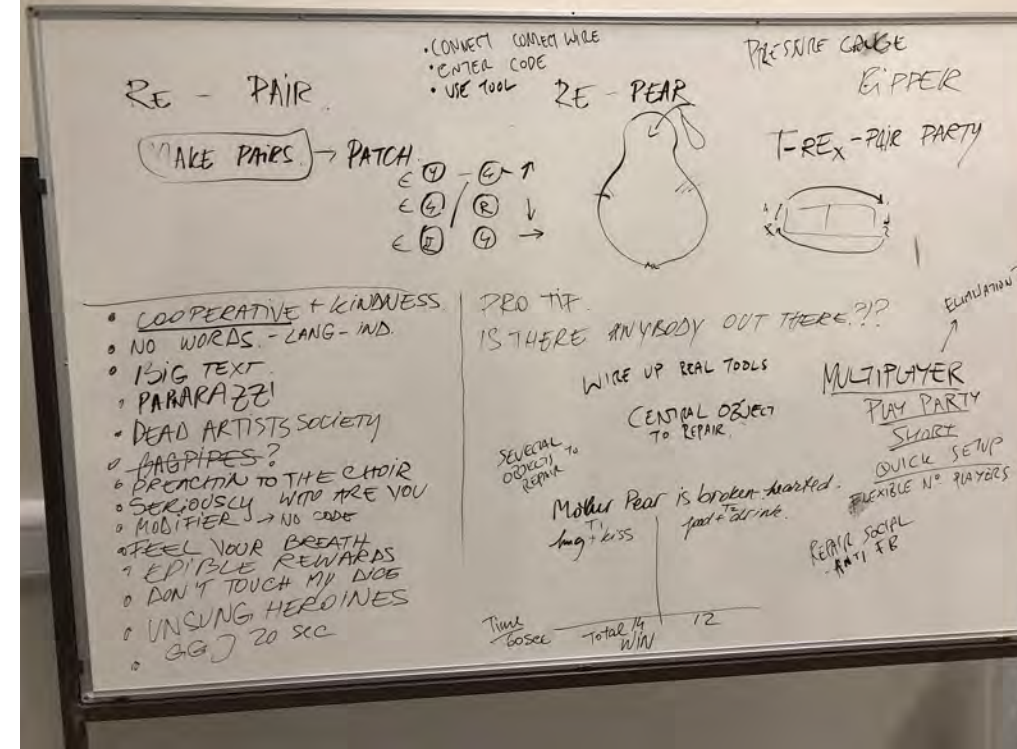 RE - PAIR
• CONNECT CONNECT WIRE
• ENTER CODE
• USE TOOL
RE - PEAR
PRESSURE GAUGE
T-REX-PAIR PARTY
MAKE PAIRS → PATCH
• COOPERATIVE + KINDNESS
• NO WORDS. - LANG-IND.
• BIG TEXT.
• PAPARAZZI
• DEAD ARTISTS SOCIETY
• BAGPIPES?
• PREACHIN TO THE CHOIR
• SERIOUSLY WHO ARE YOU
• MODIFIER → NO CODE
• FEEL YOUR BREATH
• EDIBLE REWARDS
• DON'T TOUCH MY DICE
• UNSUNG HEROINES
• GGJ 20 SEC
PRO TIP.
IS THERE ANYBODY OUT THERE?!?
WIRE UP REAL TOOLS
CENTRAL OBJECT
TO REPAIR.
SEVERAL
OBJECTS TO
REPAIR
Mother Pear is broken-hearted.
T1
hug + kiss
T2
food + drink.
Time
60sec
Total 14
WIN
12
ELIMINATION
MULTIPLAYER
PLAY PARTY
SHORT
QUICK SETUP
FLEXIBLE N° PLAYERS
REPAIR SOCIAL
- ANTI FB